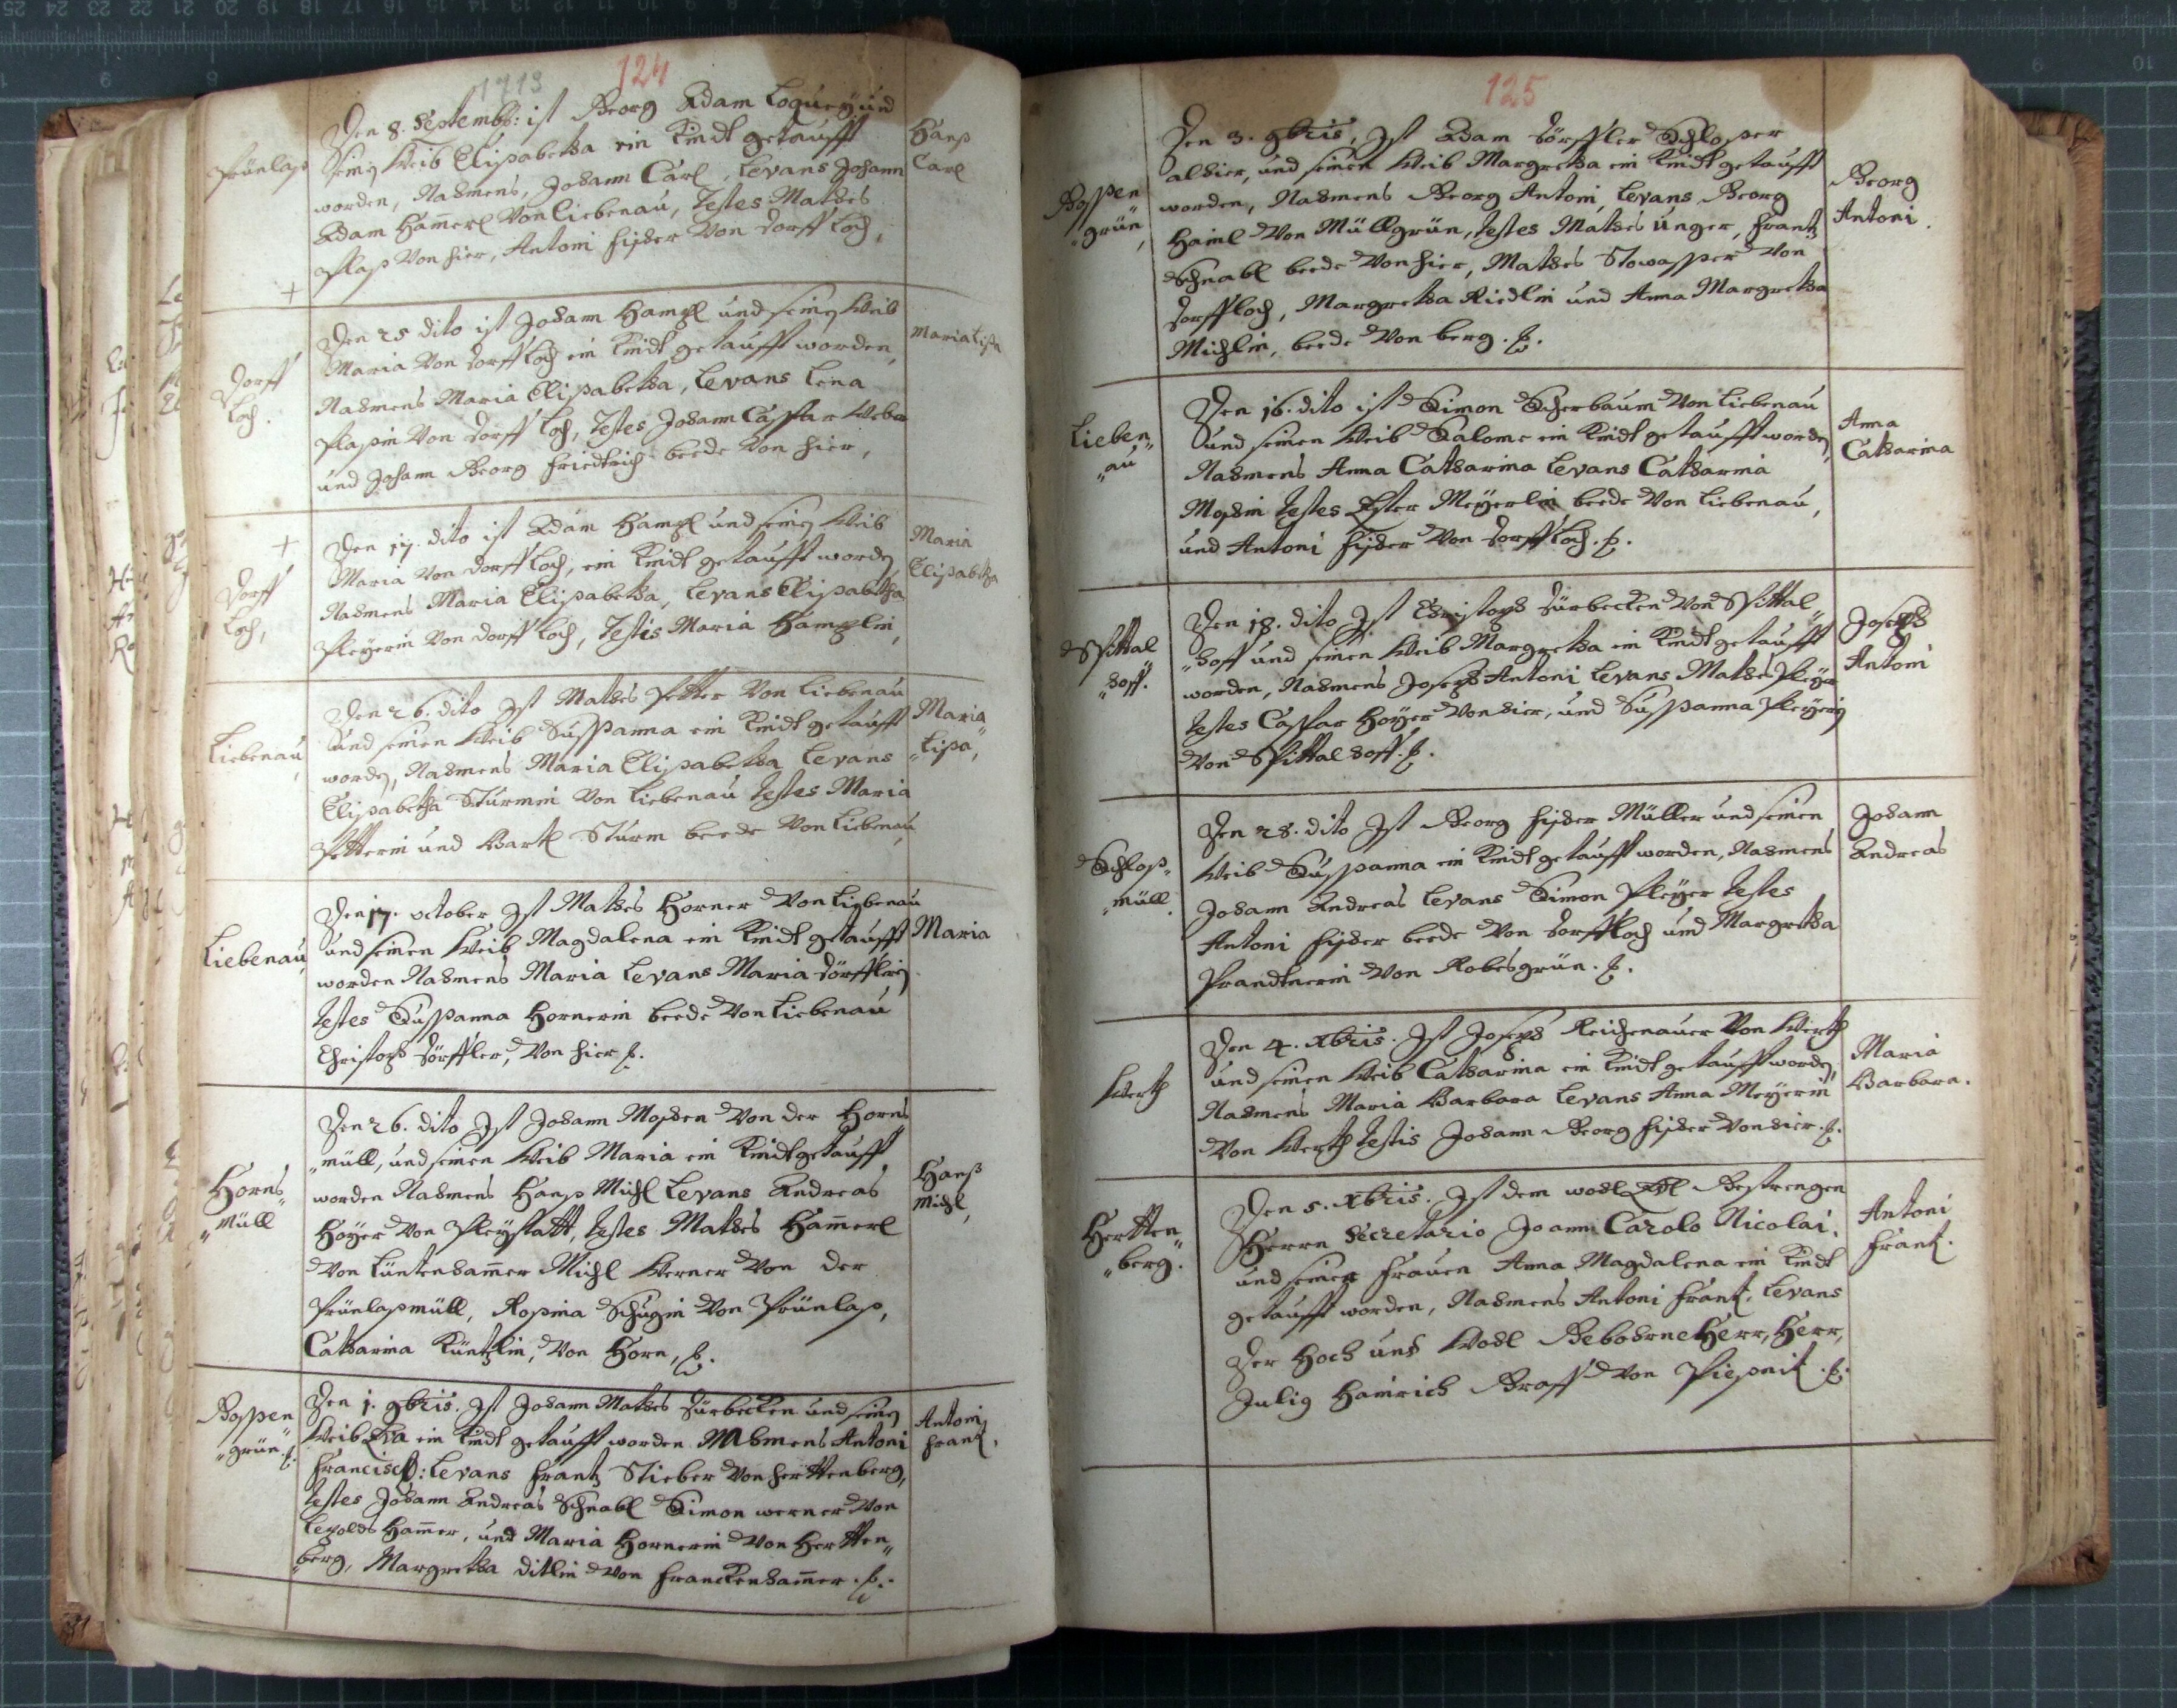 1713
124
Prünlaß
Den 8. Septemb: ist Georg Adam Loquey und
seinē Weib Elisabetha ein Kindt getaufft
worden, Nahmens, Johann Carl, Levans Johann
Adam Ham̄erl Von Liebenau, Testes Mathes
Plaß Von hier, Antoni Fischer Von Dorff Loch,
Hanß
Carl
+
Dorff
Loch.
Den 25 dito ist Johann Hampl und seinē Weib
Maria Von Dorff Loch ein Kindt getaufft worden,
Nahmens Maria Elisabetha, Levans Lena
Plaßin Von Dorff Loch, Testes Johann Caspar Weber
und Johann Georg Friedtrich beede Von hier,
Maria Lisa
+
Dorff
Loch,
Den 17. dito ist Adam Hampl und seinē Weib
Maria Von Dorff Loch, ein Kindt getaufft wordē,
Nahmens Maria Elisabetha, Levans Elisabetha
Pleyerin Von Dorff Loch, Testis Maria Hamplin,
Maria
Elisabetha
Liebenau,
Den 26. dito Ist Mathes Petter Von Liebenau
und seinen Weib Susanna ein Kindt getaufft
wordē, Nahmens Maria Elisabetha Levans
Elisabetha Sturmin Von Liebenau Testes Maria
Petterin und Bartl Sturm beede Von Liebenau,
Maria
Lisa,
Liebenau,
Den 17. october Ist Mathes Horner Von Liebenau
und seinen Weib Magdalena ein Kindt getaufft
worden Nahmens Maria Levans Maria Dörfflerin
Testes Susanna Hornerin beede Von Liebenau
Christoph Dörffler, Von hier p.
Maria
Horns
Müll
Den 26. dito Ist Johann Moßen Von der Horns
müll, und seinen Weib Maria ein Kindt getaufft
worden Nahmens Hanß Michl Levans Andreas
Hoyer Von Pleystatt, Testes Mathes Ham̄erl
Von Lüntenham̄er Michl Werner Von der
Prünlaßmüll, Rosina Schugin Von Prünlaß,
Catharina Küntzlin, Von Horn, p.
Hanß
Michl,
Gossen
grün. p.
Den 1. 9bris. Ist Johann Mathes Dürbecken und seinē
Weib Eva ein Kindt getaufft worden Nahmens Antoni
Francisc: Levans Frantz Stieber Von Herttenberg,
Testes Johann Andreas Schnabl Simon Werner Von
Lepolds Ham̄er, und Maria Hornerin Von Hertten
berg, Margretha Ditlin Von Franckenham̄er. p.
Antoni,
Frantz,
125
Gossen
grün,
Den 3. 9bris, Ist Adam Dörffler Schlosser
alhier, und seinen Weib Margretha ein Kindt getaufft
worden, Nahmens Georg Antoni, Levans Georg
Haiml Von Müllgrün, Testes Mathes Unger, Frantz
Schnabl beede Von hier, Mathes Stowasser Von
Dorffloch, Margretha Riedlin und Anna Margretha
Michlin, beede Von berg. p.
Georg
Antoni.
Lieben
au
Den 16. dito ist Simon Scherbaum Von Liebenau
und seinen Weib Salome ein Kindt getaufft wordē,
Nahmens Anna Catharina Levans Catharina
Moßin Testes Ester Meyerlin beede Von Liebenau,
und Antoni Fischer Von Dorffloch. p.
Anna
Catharina
Spittal
hoff.
Den 18. dito Ist Christoph Dürbecken Von Spittal
hoff und seinen Weib Margretha ein Kindt getaufft
worden, Nahmens Joseph Antoni Levans Mathes Pleyer
Testes Caspar Hoyer Von hier, und Susanna Pleyerin
Von Spittalhoff. p.
Joseph
Antoni
Schloß
müll.
Den 28. dito Ist Georg Fischer Müller und seinen
Weib Susanna ein Kindt getaufft worden, Nahmens
Johann Andreas Levans Simon Pleyer Testes
Antoni Fischer beede Von Dorffloch und Margretha
Prandtnerin Von Robesgrün. p.
Johann
Andreas
Werth
Den 4. Xbris. Ist Joseph Reichenauer Von Werth
und seinen Weib Catharina ein Kindt getaufft wordē,
Nahmens Maria Barbara Levans Anna Meyerin
Von Werth Testis Johann Georg Fischer Von hier. p.
Maria
Barbara.
Hertten
berg.
Den 5. Xbris. Ist dem wohl Edl Gestrengen
Herrn Secretario Joanni Carolo Nicolai,
und seiner Frauen Anna Magdalena ein Kindt
getaufft worden, Nahmens Antoni Frantz, Levans
Der Hoch und Wohl Gebohrne Herr, Herr,
Julig Hainrich Graff Von Piesnik. p.
Antoni
Frantz.